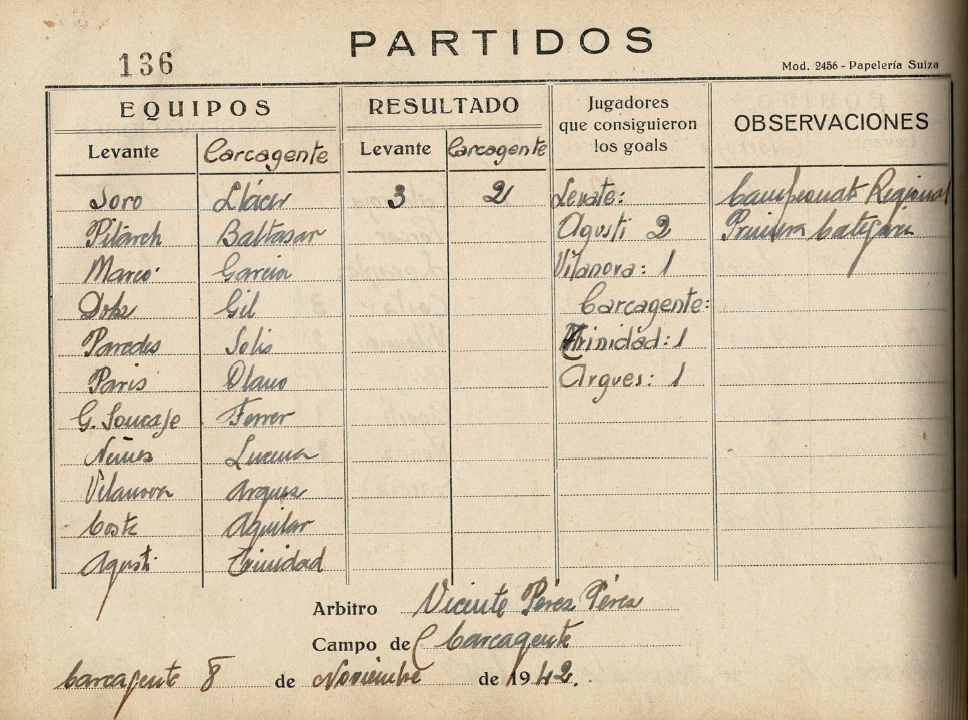 PARTIDOS
136
Mod. 2456 - Papelería Suiza
EQUIPOS RESULTADO Jugadores que consiguieron los goals OBSERVACIONES
Levante Carcagente Levante Carcagente
Soro Llácer 3 2 Levate: Campeonato Regional
Pitarch Baltasar Agustí 2 Primera Categoria
Marco García Vilanova: 1
Dolz Gil Carcagente:
Paredes Solis Trinidad: 1
Paris Olano Argues: 1
G. Soucase Ferrer
Nuñes Lucena
Vilanova Argues
Costa Aguilar
Agusti Trinidad
Arbitro Vicente Pérez Pérez
Campo de Carcagente
Carcagente 8 de Noviembre de 1942.